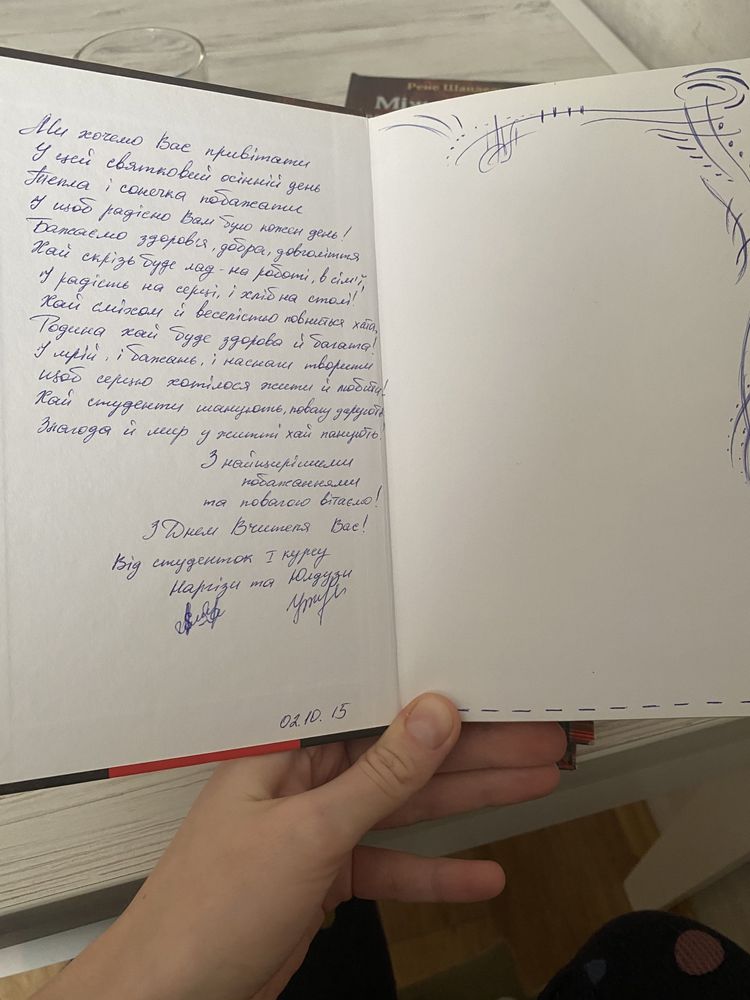 Рене Шпапе
Між
Ми хочемо Вас привітати
У цей святковий осінній день
Тепла і сонечка побажати
І щоб радісно Вам було кожен день!
Бажаємо здоров'я, добра, довголіття
Хай скрізь буде лад - на роботі, в сім'ї,
І радість на серці, і хліб на столі!
Хай сміхом й веселістю повниться хата,
Родина хай буде здорова й багата!
І мрій, і бажань, і наснаги творити
щоб серцю хотілося жити й любити!
Хай студенти шанують, повагу дарують,
Злагода й мир у житті хай панують!
З найщирішими
побажаннями
та повагою вітаємо!
З Днем Вчителя Вас!
Від студенток І курсу
Наргізи та Юлдузи
02.10.15